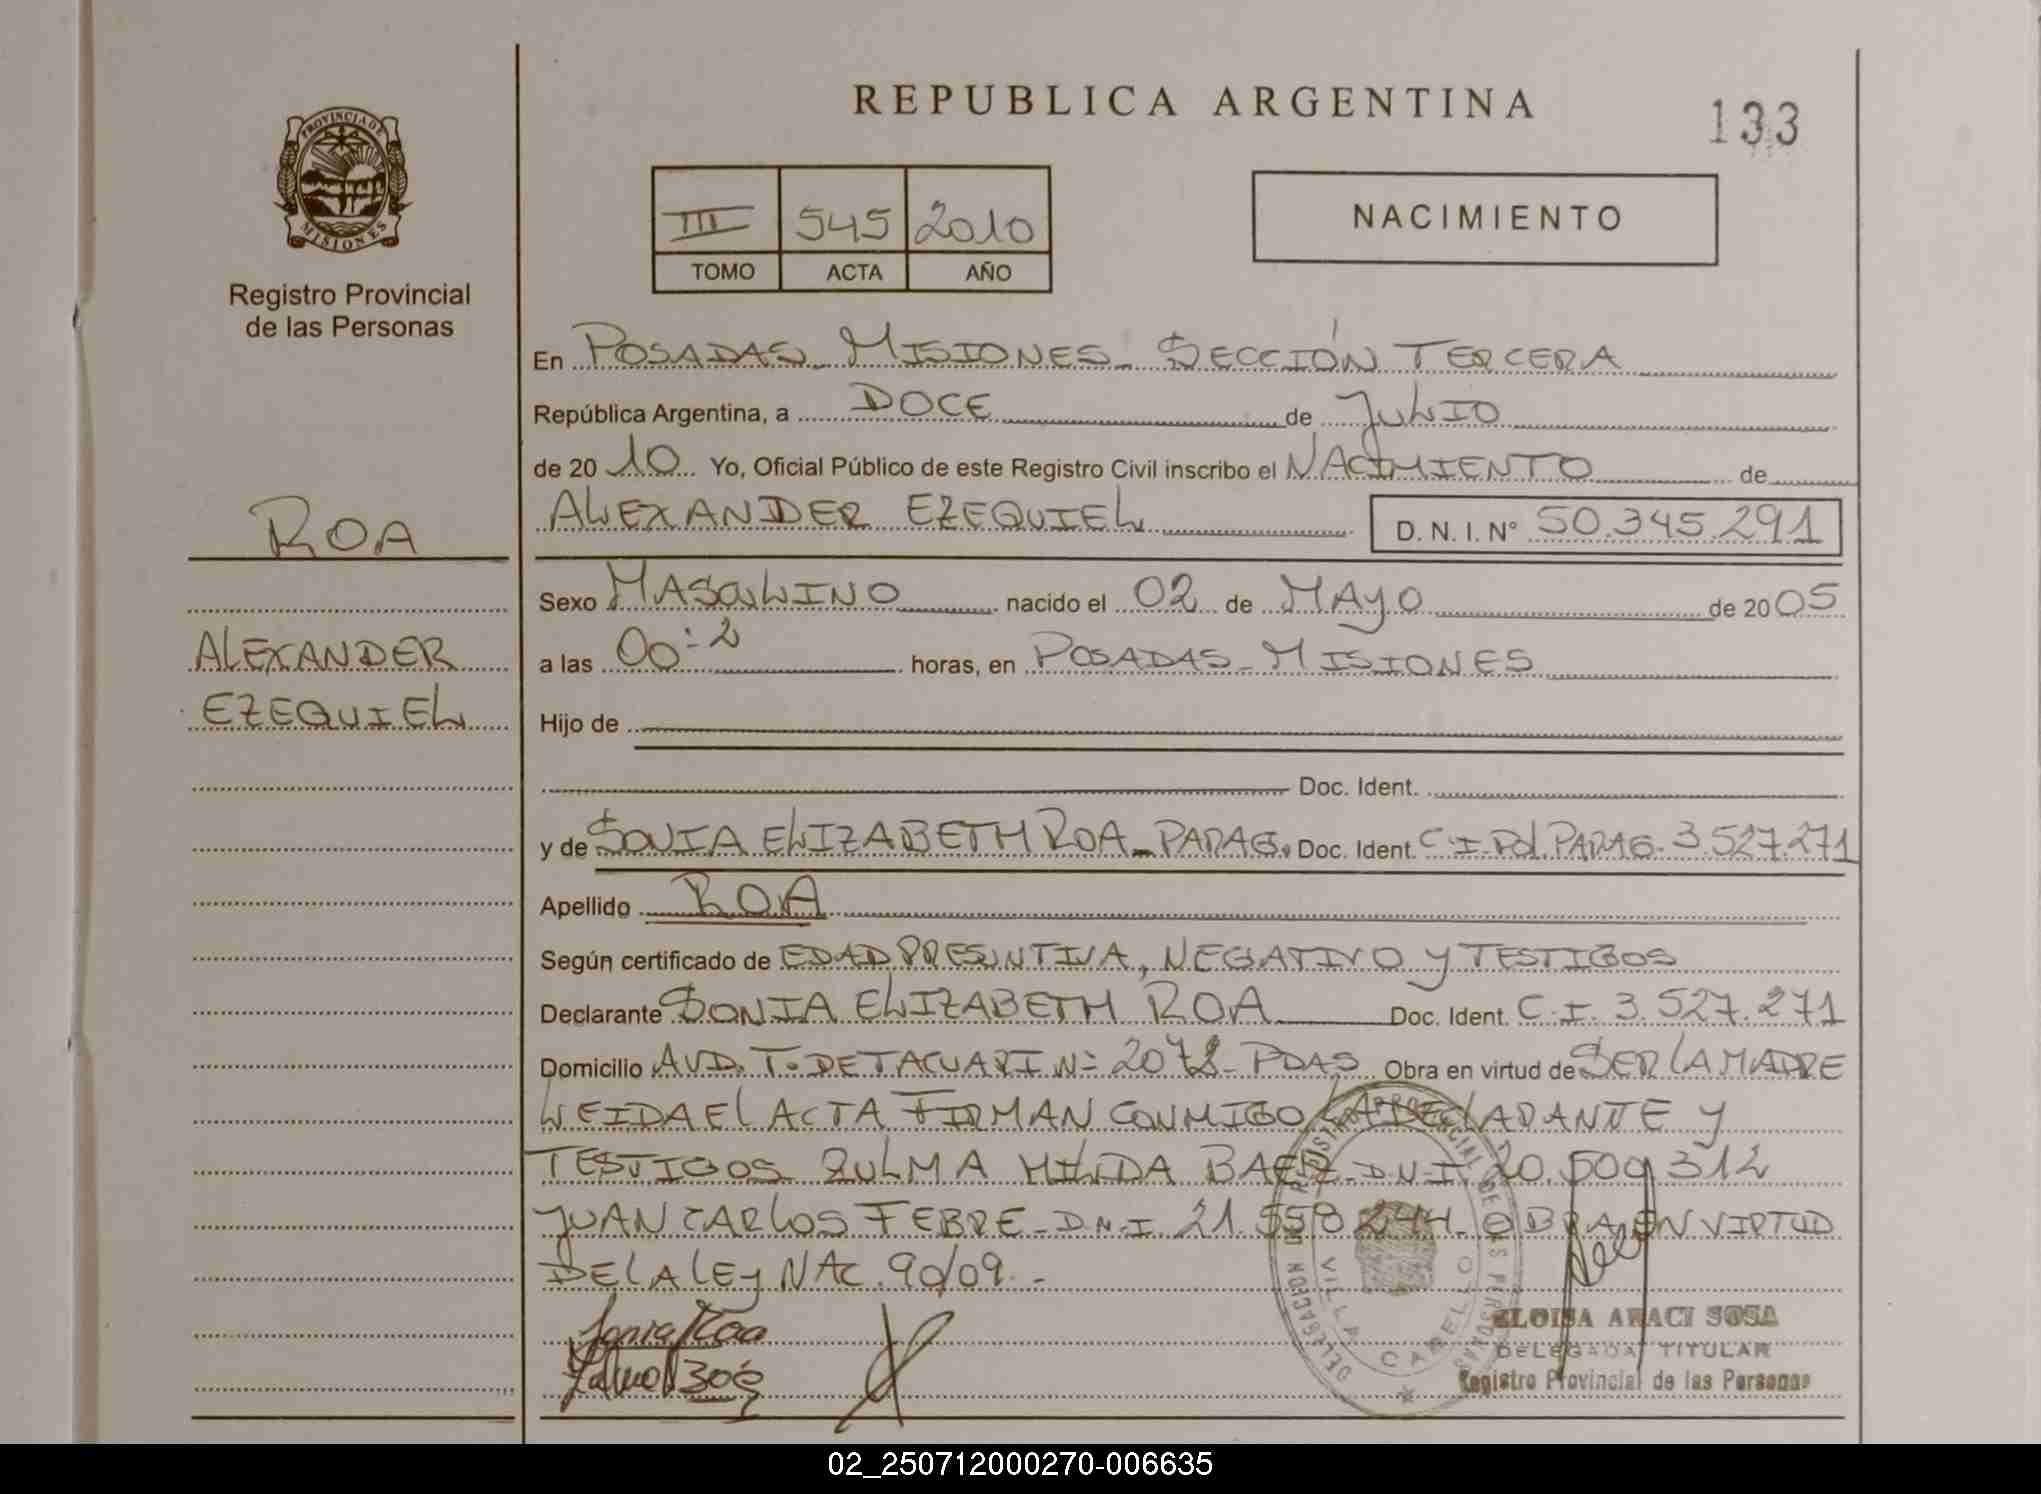 REPUBLICA ARGENTINA
133
PROVINCIA DE
MISIONES
Registro Provincial
de las Personas
III 545 2010
TOMO ACTA AÑO
NACIMIENTO
En POSADAS - MISIONES - SECCIÓN TERCERA
República Argentina, a DOCE de JULIO
de 2010 Yo, Oficial Público de este Registro Civil inscribo el NACIMIENTO de
ALEXANDER EZEQUIEL D.N.I. N° 50.345.291
ROA
ALEXANDER
EZEQUIEL
Sexo MASCULINO nacido el 02 de MAYO de 2005
a las 00:2 horas, en POSADAS - MISIONES
Hijo de
Doc. Ident.
y de SONIA ELIZABETH ROA - PARAG. Doc. Ident. C.I. Pol. PARAG. 3.527.271
Apellido ROA
Según certificado de EDAD PRESUNTIVA, NEGATIVO y TESTIGOS
Declarante SONIA ELIZABETH ROA Doc. Ident. C.I. 3.527.271
Domicilio AVD. T. DE TACUARI N= 2078 - PDAS Obra en virtud de SER LA MADRE
LEIDA El ACTA FIRMAN CONMIGO LA DECLARANTE y
TESTIGOS ZULMA HILDA BAEZ - D.N.I. 20.509.312
JUAN CARLOS FEBRE - D.N.I. 21.558.244 - OBRA EN VIRTUD
DE LA LEY NAC. 90/09.-
Sonia Roa
DELEGACION DEL REGISTRO PROVINCIAL DE LAS PERSONAS
VILLA CABELLO
ELOISA ARACI SOSA
DELEGADA TITULAR
Registro Provincial de las Personas
02_250712000270-006635